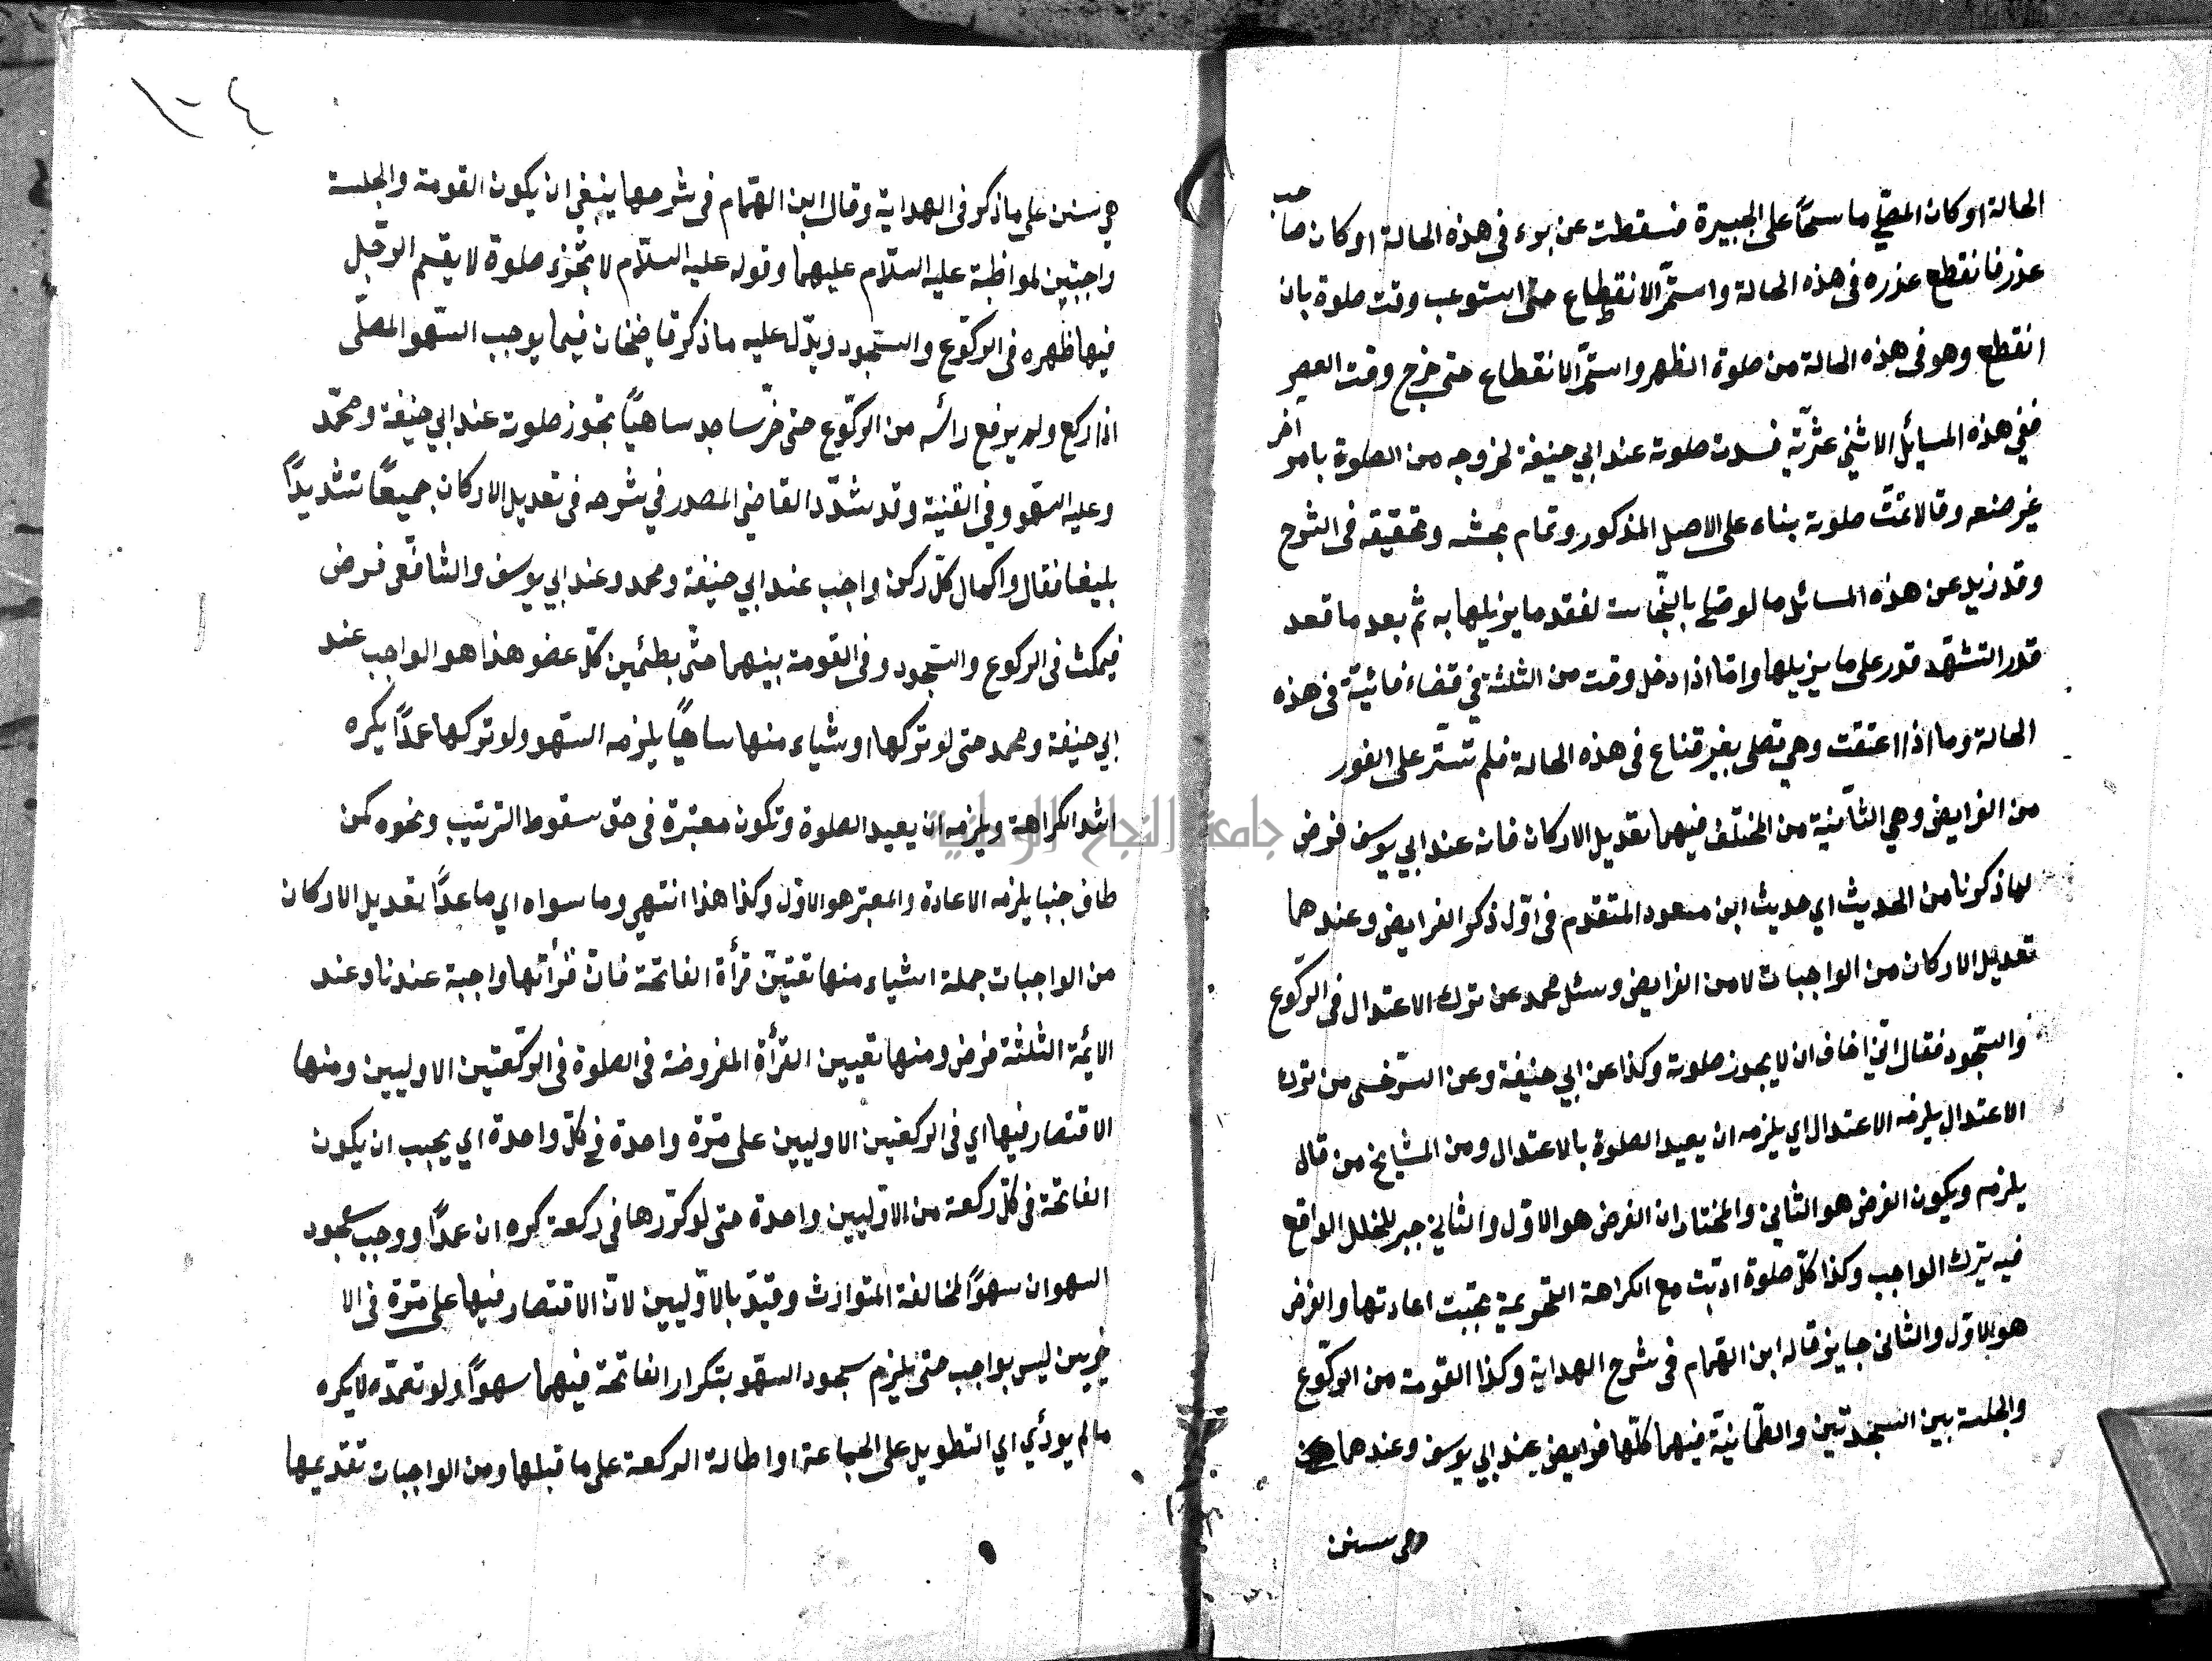 الحالة او كان المصلي ماسحًا على الجبيرة فسقطت عن برء فى هذه الحالة او كان صاحب
عذر فانقطع عذره فى هذه الحالة واستمّر الانقطاع حتى استوعب وقت صلوة بان
انقطع وهو فى هذه الحالة من صلوة الظهر واستمّر الانقطاع حتى خرج وقت العصر
ففي هذه المسايل الاثنى عشرية فسدت صلوته عند ابي حنيفة لخروجه من الصلوة بامر آخر
غير صنعه وقالا تمّت صلوته بناء على الاصل المذكور وتمام بحثه وتحقيقه فى الشرح
وقد زيد عن هذه المسائل ما لو صلى بالنجّاست لفقد ما يزيلها به ثم بعد ما قعد
قدر التشهّد قدر على ما يزيلها وامّا اذا دخل وقت من الثلثة في قضاء فائتيّة فى هذه
الحالة وما اذا اعتقت وهي تصلى بغير قناع فى هذه الحالة فلم تتستّر على الفور
من الفرايض وهي الثاّمنية من المختلف فيهما تعديل الاركان فانه عند ابي يوسف فرض
لما ذكرنا من الحديث اي حديث ابن مسعود المتقدم فى اوّل ذكر الفرايض وعندهما
تعديل الاركان من الواجبات لا من الفرايض وسئل محمد عن ترك الاعتدال فى الركّوع
والسّجود فقال انّي اخاف ان لا يجوز صلوته وكذا عن ابي حنيفة وعن السّرخسى من ترك
الاعتدال يلزمه الاعتدال اي يلزمه ان يعيد الصلوة بالاعتدال ومن المشايخ من قال
يلزمه ويكون الفرض هو الثاني والمختار ان الفرض هو الاوّل والثاني جبر للخلل الواقع
فيه بترك الواجب وكذا كلّ صلوة ادّيت مع الكراهة التحريمية يجب اعادتها والفرض
هو الاوّل والثانى جايز قاله ابن الهمام فى شرح الهداية وكذا القومة من الركّوع
والجلسة بين السجدتّين والطّمانيّة فيهما كلّها فرايض عند ابي يوسف وعندهما
هى سنن
١٠٤
هي سنن على ما ذكر فى الهداية وقال ابن الهمّام فى شرحها ينبغي ان يكون القومة والجلسة
واجبتين لمواظبة عليه السّلام عليهما وقوله عليه السّلام لا تجزء صلوة لا يقيم الرّجل
فيها ظهره فى الركوّع والسّجود ويدّل عليه ما ذكر قاضيخان فيما يوجب السّهو المصلّى
اذا ركع ولم يرفع رأسه من الركّوع حتى خرّ ساجد ساهيًا تجوز صلوته عند ابي حنيفة ومحمّد
وعليه السّهو وفي القنية وقد شدّد القاضي المصدر في شرحه فى تعديل الاركان جميعًا تشديدًا
بليغا فقال واكمال كلّ ركن واجب عند ابي حنيفة ومحمد وعند ابي يوسف والشافّعي فرض
فيمكث فى الركوع والسّجود وفى القومة بينهما حتّى يطئمين كلّ عضو هذا هو الواجب عند
ابي حنيفة ومحمد حتى لو تركها او شياء منها ساهيًا يلزمه السّهو ولو تركها عمدًا يكره
اشد الكراهة ويلزمه ان يعيد الصلوة وتكون معتبرة فى حق سقوط الترتيب ونحوه كمن
طاف جنبا يلزمه الاعادة والمعتبر هو الاوّل وكذا هذا انتهي وما سواه اي ما عدًا تعديل الاركان
من الواجبات جملة اشياء منها تعيّين قرأة الفاتحة فانّ قرأتها واجبة عندنا وعند
الايمّة الثلثة فرض ومنها تعيين القرأة المفروضة فى الصلوة فى الركّعتين الاوليين ومنها
الاقتصار فيها اي فى الركعتين الاوليين على مرّة واحدة في كلّ واحدة اي يجب ان يكون
الفاتحة فى كلّ ركعة من الاوّليين واحدة حتى لو كرّرها فى ركعة كره ان عمدًا ووجب سجود
السهو ان سهوًا لمخالفة المتوارث وقيدّ بالاوّليين لانّ الاقتصار فيها على مرّة فى الا
خريين ليس بواجب حتى يلزم سجود السهّو بتكرار الفاتحة فيهما سهوًا ولو تعمدّه لا يكره
ما لم يودّي اي التطويل على الجماعة او اطالة الركعة على ما قبلها ومن الواجبات تقديمها
جامعة النجاح الوطنية